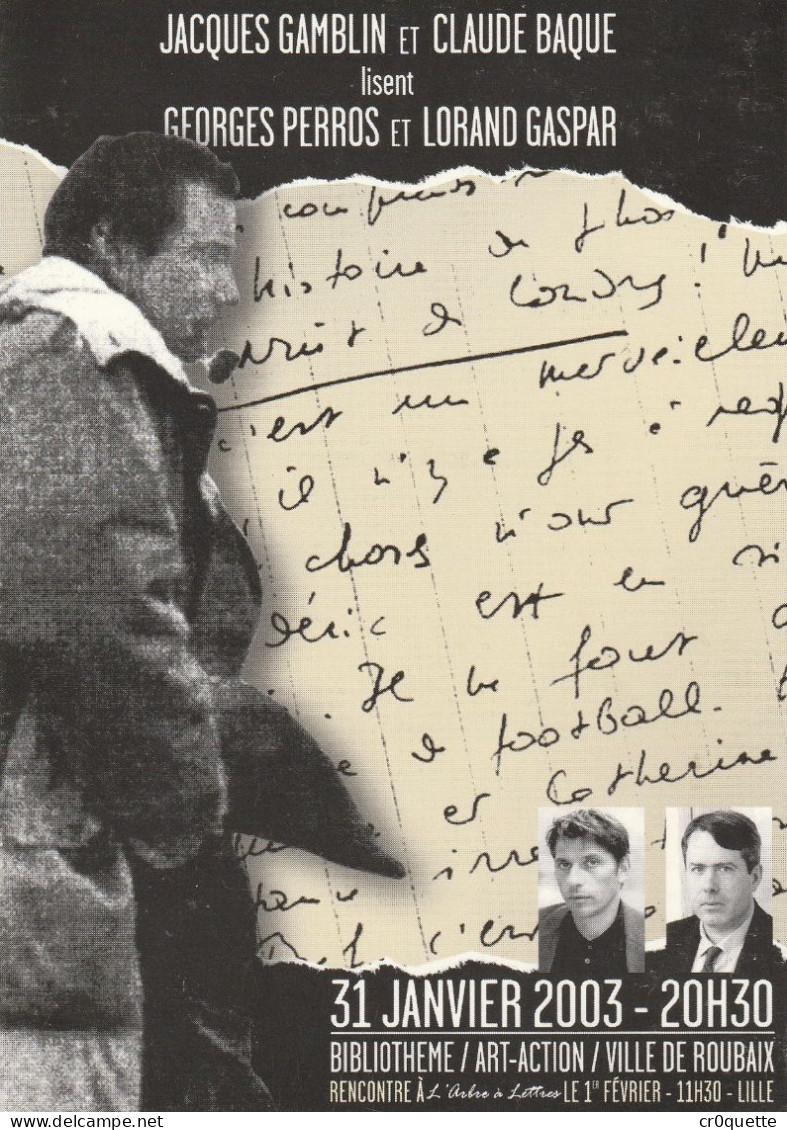 JACQUES GAMBLIN ET CLAUDE BAQUE
lisent
GEORGES PERROS ET LORAND GASPAR
histoire de
de Londres !
c'est un merveilleu
il n'y a
chors n'ont guèr
déric est en
Je
de football.
et Catherine
c'es
31 JANVIER 2003 - 20H30
BIBLIOTHEME / ART-ACTION / VILLE DE ROUBAIX
RENCONTRE À L'Arbre à Lettres LE 1ER FÉVRIER - 11H30 - LILLE
cr0quette